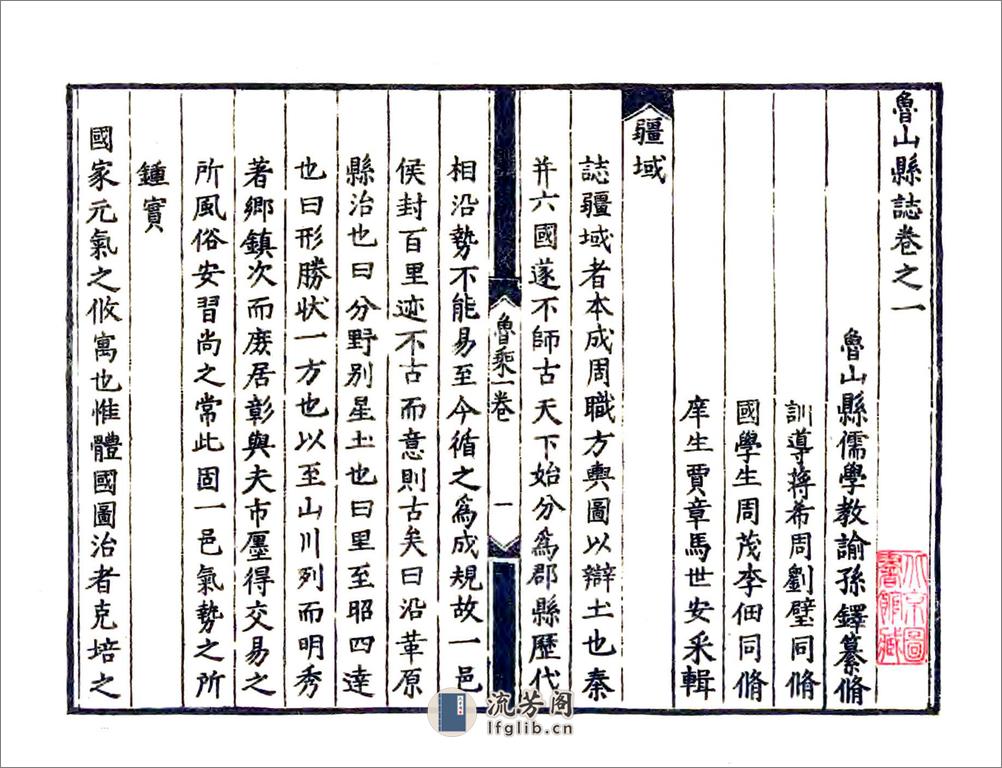 魯山縣誌卷之一
魯山縣儒學教諭孫鐸纂脩
訓導蔣希周劉璧同脩
國學生周茂李佃同脩
庠生賈章馬世安采輯
疆域
誌疆域者本成周職方輿圖以辯土也秦
并六國遂不師古天下始分爲郡縣歷代
魯乘一卷
一
相沿勢不能易至今循之爲成規故一邑
侯封百里迹不古而意則古矣曰沿革原
縣治也曰分野別星土也曰里至昭四達
也曰形勝狀一方也以至山川列而明秀
著鄉鎮次而庶居彰與夫市廛得交易之
所風俗安習尚之常此固一邑氣勢之所
鍾實
國家元氣之攸寓也惟體國圖治者克培之
北京圖書館藏
流芳阁
lfglib.cn